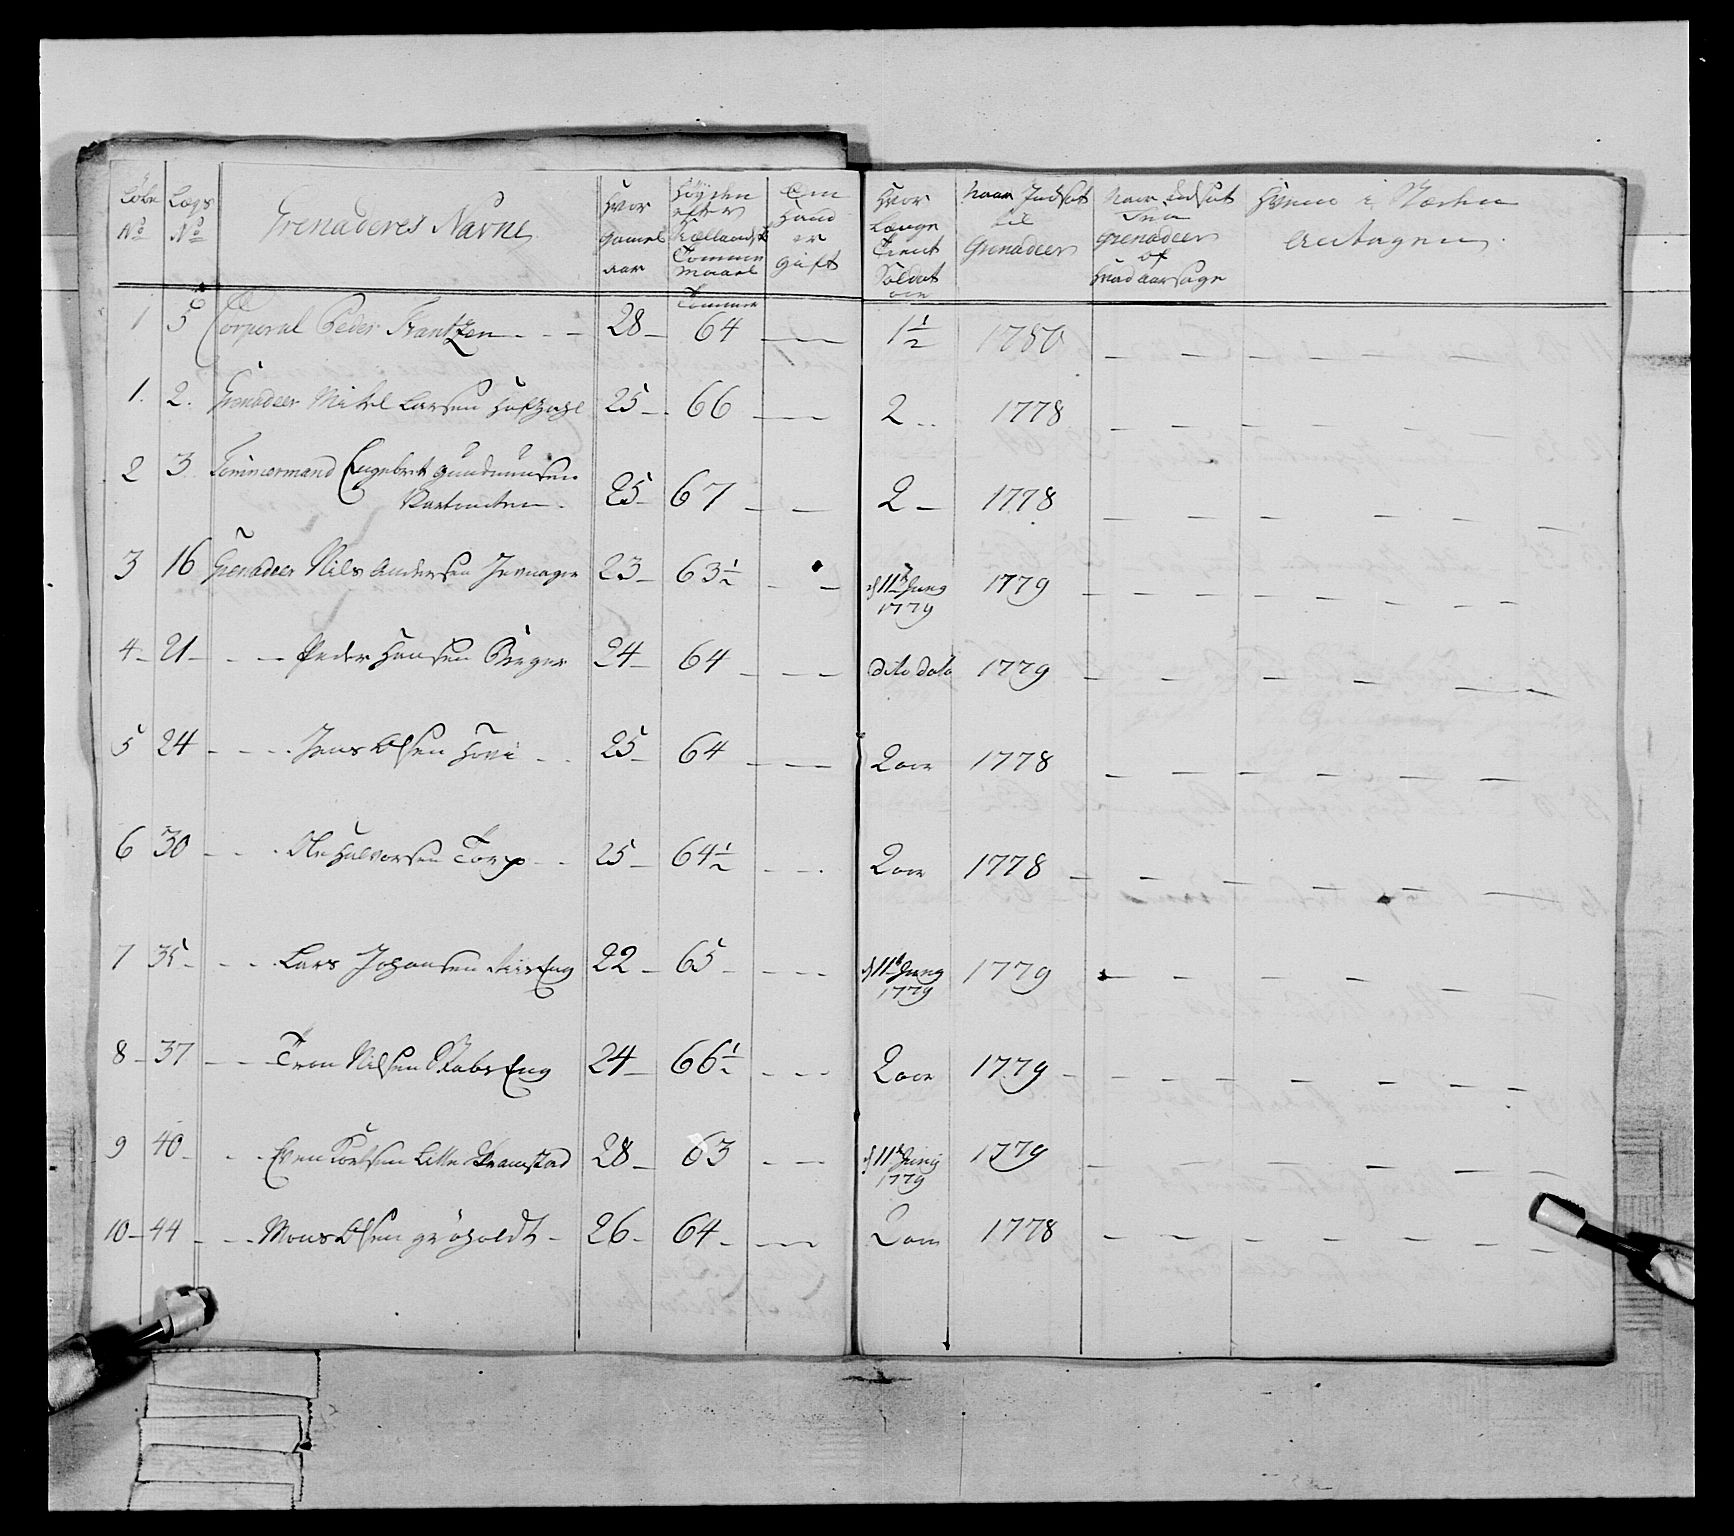 Løbe No
Lægs No
Grenaderes Navne
Hvor gamel aar
Høyden efter Siællandsk Tomme Maael
Om Hand er gift
Hvor Længe Tient Soldat aar
Naar Indsat til Grenadeer
Naar Indsat Fra Grenadeer af Hvad aarsage
Hvem i Stæden Antagen
Tommer
1 5 Corporal Peder Frantzen - - - 28 - 64 - - 1½ 1780 - - - - - -
1. 2. Grenadeer Mikel Larsen 25 - 66 - - 2 - - 1778 - - - - - -
2 3 Tømmermand Engebret Gundmunsen
25 - 67 - - 2 - 1778 - - - - - -
3 16 Grenadeer Nils Andersen 23 - 63½ - - d 11te Juny 1779 - - - - - -
1779
4 - 21 - - - Peder Hansen Berger 24 - 64 - - - dito dato 1779 - - - - - -
5 24 - - - Jens Olsen Hovi - - 25 - 64 - - - 2 aar 1778 - - - - - -
6 30 - - - Ole Halvorsen Torp - - 25 - 64½ - - - 2 aar 1778 - - - - - -
7 35 - - - Lars Johansen 22 - 65 - - - - d 11te Juny 1779 - - - - - -
1779
8 - 37 - - - Tron Nilsen 24 - 66½ - - - 2 aar 1779 - - - - - -
9 40 - - - Even Lille 28 - 63 - - d 11te Juny 1779 - - - - - -
1779
10 - 44 - - - Mons Olsen - 26 - 64 - - - 2 aar 1778 - - - - - -